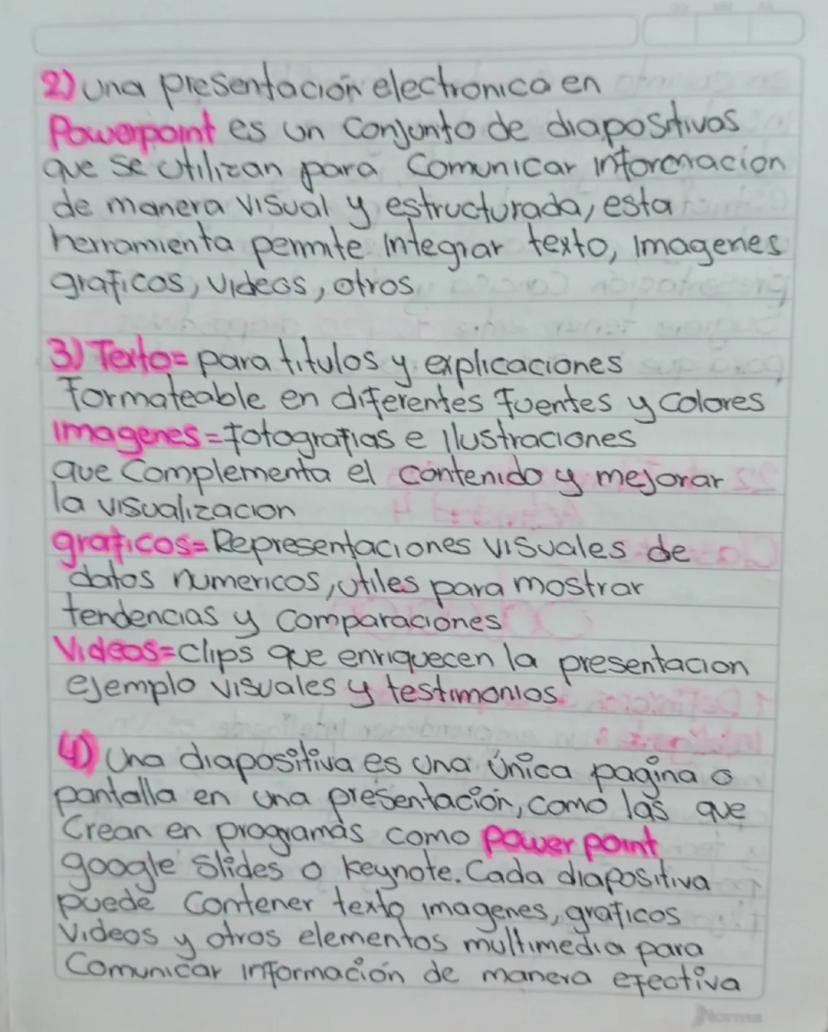 2) una presentación electronica en
Powerpoint es un conjunto de diapositivas
que se utilizan para comunicar información
de manera visual y estructurada, esta
herramienta permite integrar texto, imagenes
graficos, videos, otros
3) Texto= para titulos y explicaciones
formateable en diferentes fuentes y colores
imagenes= fotografias e ilustraciones
que complementa el contenido y mejorar
la visualizacion
graficos= Representaciones visuales de
datos numericos, utiles para mostrar
tendencias y comparaciones
Videos= clips que enriquecen la presentacion
ejemplo visuales y testimonios.
4) Una diapositiva es una única pagina o
pantalla en una presentación, como las que
Crean en programas como power point
google slides o keynote. Cada diapositiva
puede contener texto imagenes, graficos
Videos y otros elementos multimedia para
Comunicar información de manera efectiva
Norma